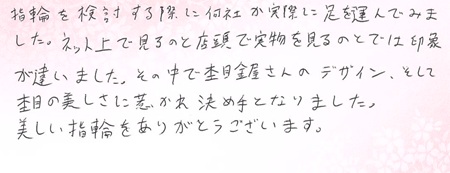 指輪を検討する際に何社か実際に足を運んでみま
した。ネット上で見るのと店頭で実物を見るのとでは印象
が違いました。その中で杢目金屋さんのデザイン、そして
杢目の美しさに惹かれ決め手となりました。
美しい指輪をありがとうございます。